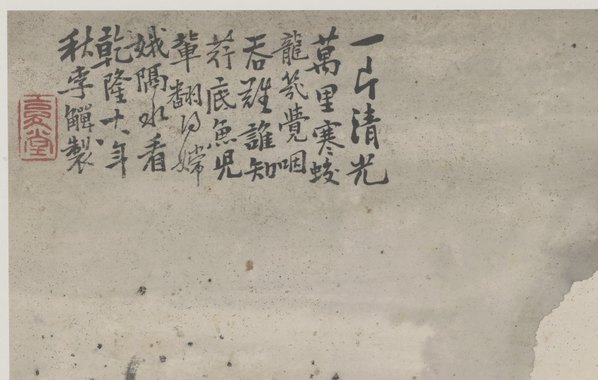 一片清光
萬里寒蛟
龍究覺咽
吞難誰知
荇底魚兒
輩翻嫦
娥隔水看
乾隆十八年
秋李觶製